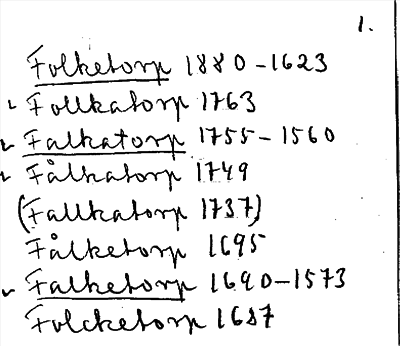 1.
Folketorp 1880-1623
Follkatorp 1763
Falkatorp 1755-1560
Fålkatorp 1749
(Fallkatorp 1737)
Fålketorp 1695
Falketorp 1690-1573
Folcketorp 1687